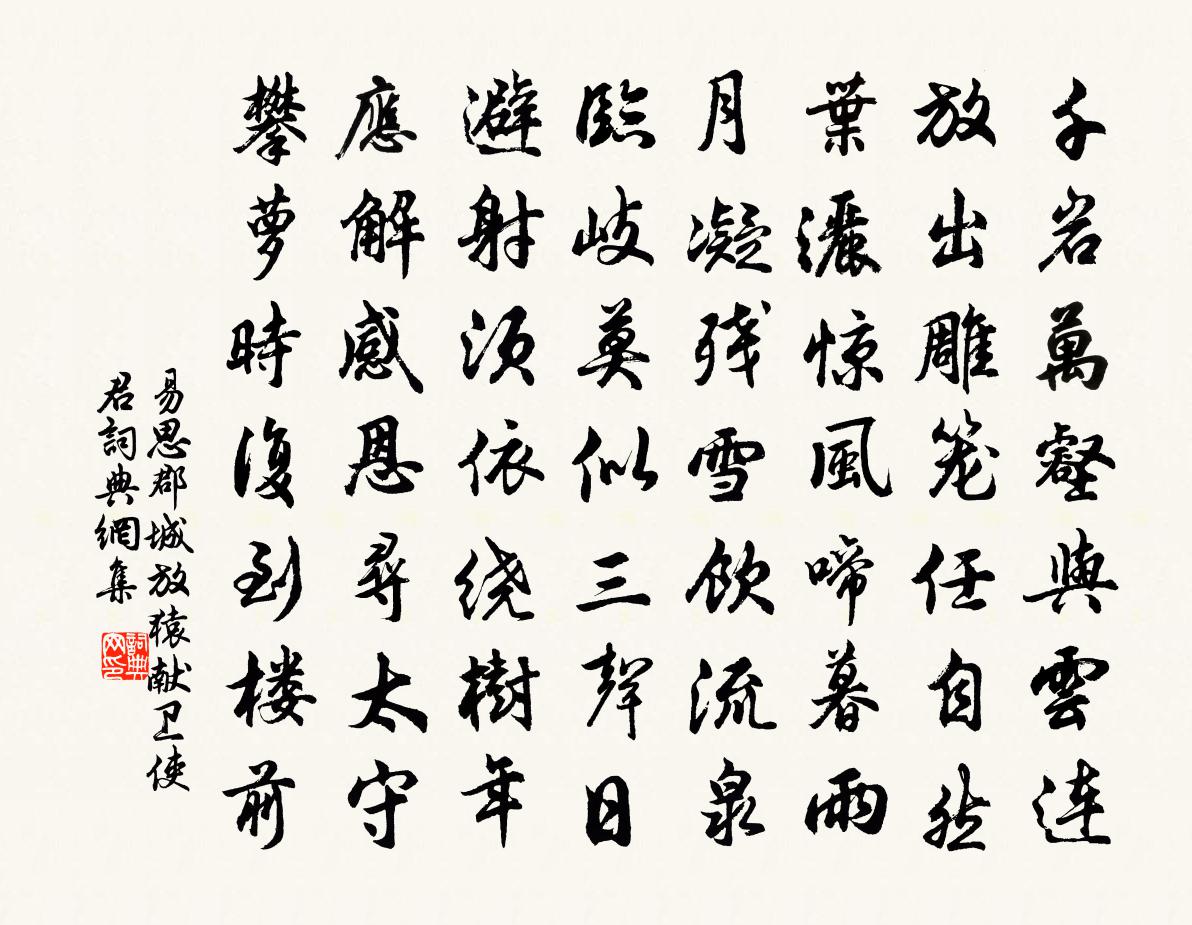 千岩萬壑與雲連
放出雕笼任自然
葉灑惊風啼暮雨
月凝残雪飲流泉
臨岐莫似三聲日
避射须依绕樹年
應解感恩尋太守
攀萝時復到楼前
易思郡城放猿献卫使
君詞典網集
詞典
网印